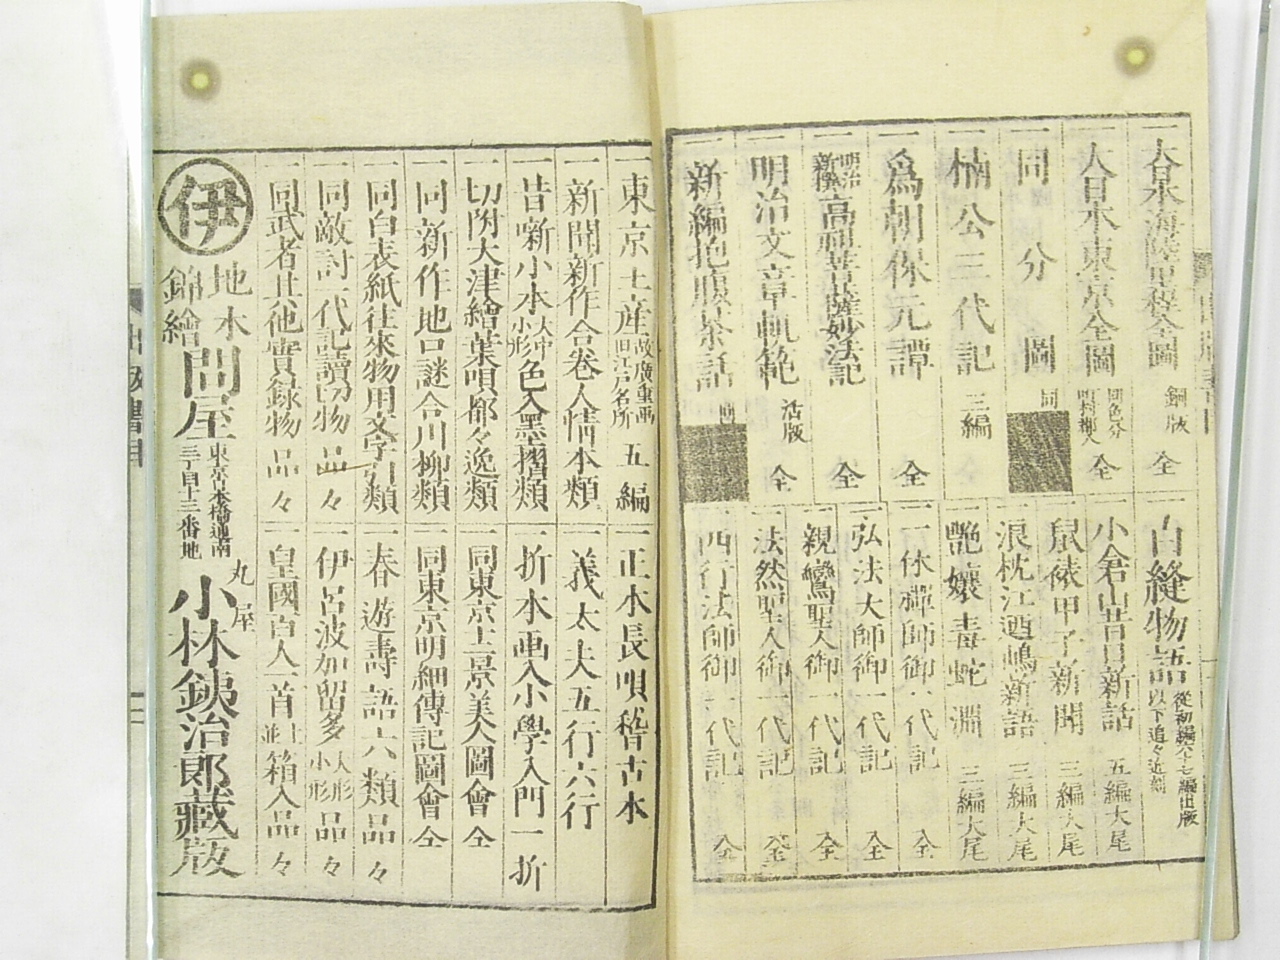 一大日本海陸里程全圖 銅版 全
一大日本東京全圖 同色分 全
一同分圖 同
一楠公三代記 三編
一爲朝保元譚 全
一明治新撰高祖菩薩妙法記 全
一明治文章軌範 活版 全
一新編抱腹茶話
一白縫物語 從初編六十七編出版 以下追々近刻
一小倉山昔日新話 五編大尾
一鼠俵甲子新聞 三編大尾
一浪枕江迺嶋新語 三編大尾
一艶孃毒蛇淵 三編大尾
一一休禪師御一代記 全
一弘法大師御一代記 全
一親鸞聖人御一代記 全
一法然聖人御一代記 全
一西行法師御一代記 全
一東京土産 故廣重画 旧江戸名所 五編
一新聞新作合巻人情本類
一昔噺小本 大中小形 色入墨摺類
一切附大津繪葉唄都々逸類
一同新作地口謎合川柳類
一同白表紙往來物用文字引類
一同敵討一代記讀切物品々
一同武者其他實録物品々
一正本長唄稽古本
一義太夫五行六行
一折本画入小學入門一折
一同東京十二景美人圖會全
一同東京明細傳記圖會全
一春遊壽語六類品々
一伊呂波加留多 大形小形 品々
一皇國百人一首 並上 箱入品々
伊
地本
錦繪
問屋
東京本橋通南
三丁目十三番地
丸屋
小林鉄治郎藏版
出版書目
二